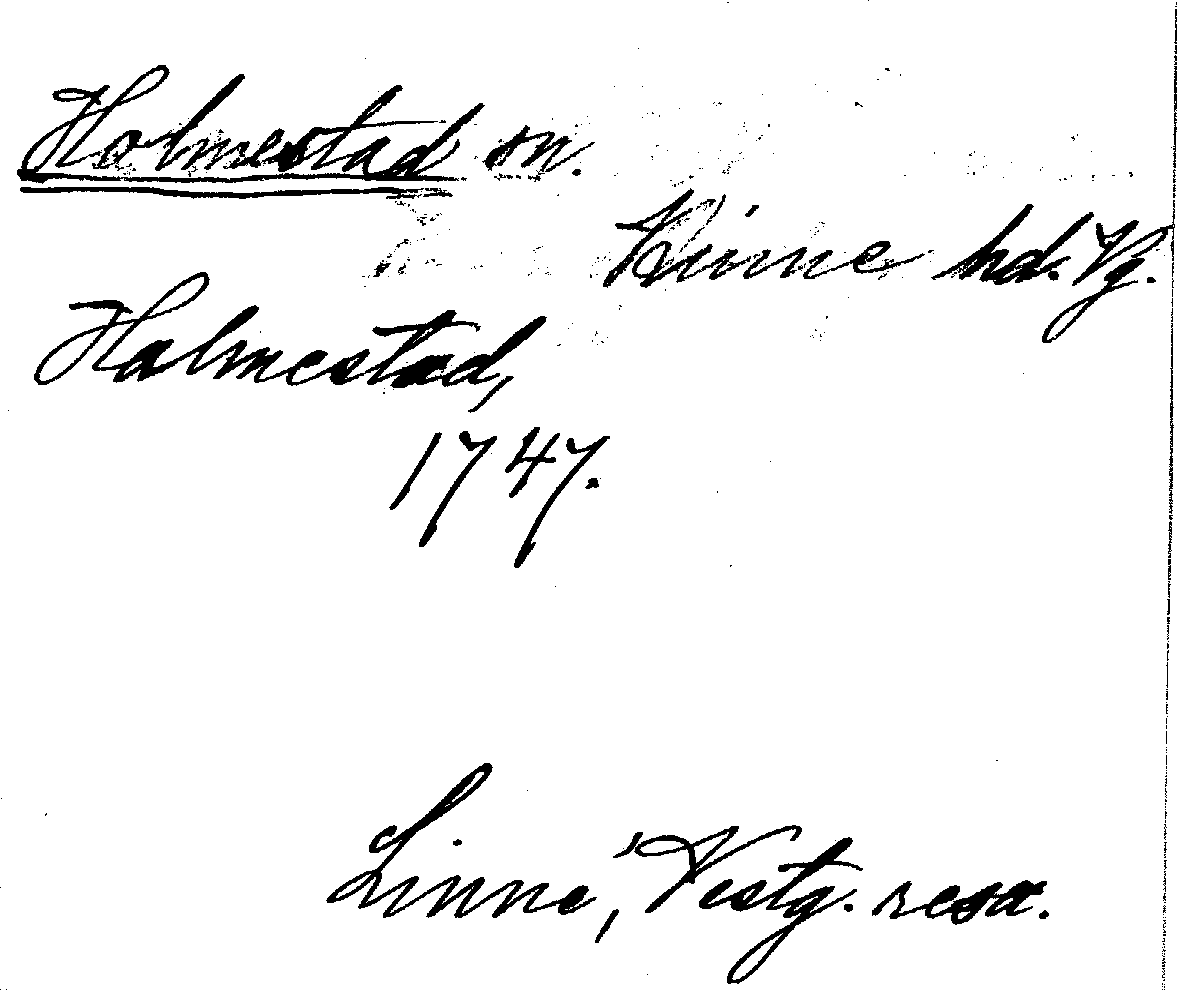 Holmestad sn.
Kinne hd. Vg.
Holmestad,
1747.
Linné, Vestg. resa.